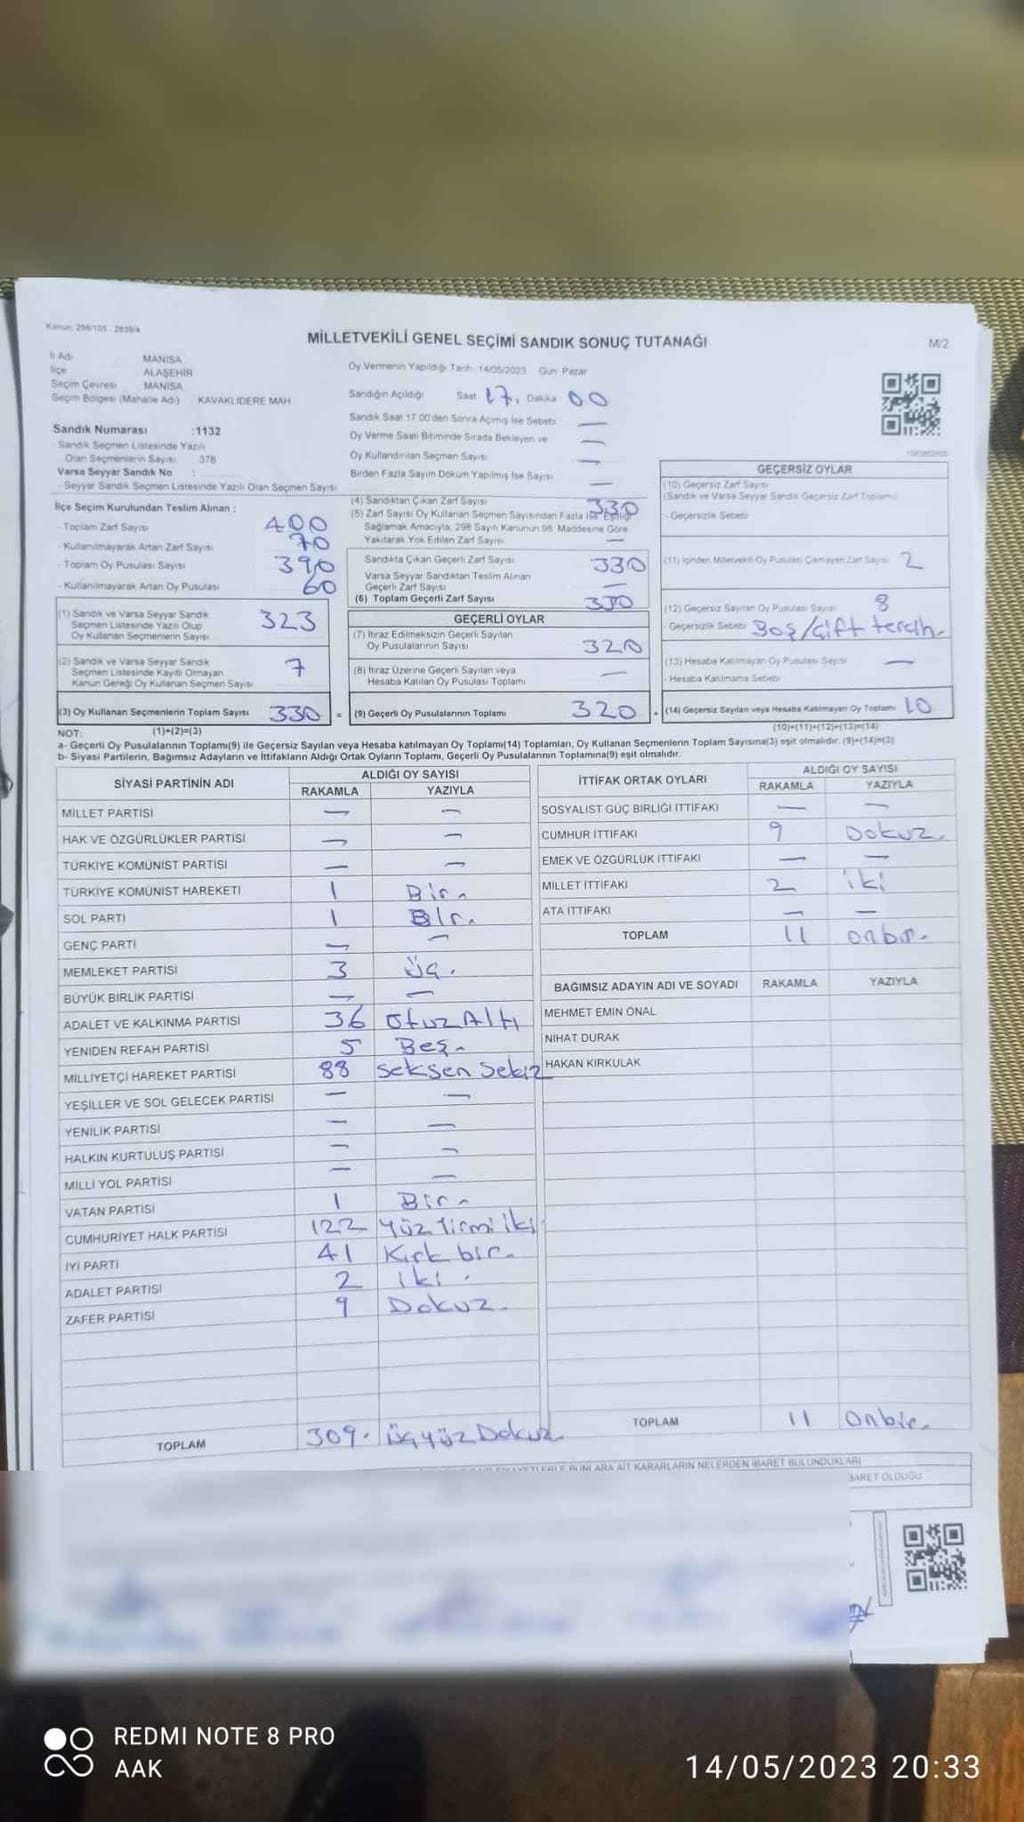 Kanun: 298/105 - 2839/4
MİLLETVEKİLİ GENEL SEÇİMİ SANDIK SONUÇ TUTANAĞI
M/2
İl Adı MANİSA
İlçe ALAŞEHİR
Seçim Çevresi MANİSA
Seçim Bölgesi (Mahalle Adı) KAVAKLIDERE MAH
Sandık Numarası :1132
- Sandık Seçmen Listesinde Yazılı
Olan Seçmenlerin Sayısı 376
Varsa Seyyar Sandık No :
- Seyyar Sandık Seçmen Listesinde Yazılı Olan Seçmen Sayısı
Oy Vermenin Yapıldığı Tarih 14/05/2023 Gün Pazar
Sandığın Açıldığı Saat 17, Dakika 00
Sandık Saat 17:00'den Sonra Açılmış İse Sebebi —
Oy Verme Saati Bitiminde Sırada Bekleyen ve —
Oy Kullandırılan Seçmen Sayısı —
Birden Fazla Sayım Döküm Yapılmış İse Sayısı —
İlçe Seçim Kurulundan Teslim Alınan :
- Toplam Zarf Sayısı 400
- Kullanılmayarak Artan Zarf Sayısı 70
- Toplam Oy Pusulası Sayısı 390
- Kullanılmayarak Artan Oy Pusulası 60
(1) Sandık ve Varsa Seyyar Sandık
Seçmen Listesinde Yazılı Olup
Oy Kullanan Seçmenlerin Sayısı 323
(2) Sandık ve Varsa Seyyar Sandık
Seçmen Listesinde Kayıtlı Olmayan
Kanun Gereği Oy Kullanan Seçmen Sayısı 7
(3) Oy Kullanan Seçmenlerin Toplam Sayısı 330 =
(4) Sandıktan Çıkan Zarf Sayısı 330
(5) Zarf Sayısı Oy Kullanan Seçmen Sayısından Fazla İse Eşitliği
Sağlamak Amacıyla, 298 Sayılı Kanunun 98. Maddesine Göre
Yakılarak Yok Edilen Zarf Sayısı —
Sandıkta Çıkan Geçerli Zarf Sayısı 330
Varsa Seyyar Sandıktan Teslim Alınan
Geçerli Zarf Sayısı —
(6) Toplam Geçerli Zarf Sayısı 330
GEÇERLİ OYLAR
(7) İtiraz Edilmeksizin Geçerli Sayılan
Oy Pusulalarının Sayısı 320
(8) İtiraz Üzerine Geçerli Sayılan veya
Hesaba Katılan Oy Pusulası Toplamı —
(9) Geçerli Oy Pusulalarının Toplamı 320 +
GEÇERSİZ OYLAR
(10) Geçersiz Zarf Sayısı
(Sandık ve Varsa Seyyar Sandık Geçersiz Zarf Toplamı)
- Geçersizlik Sebebi
(11) İçinden Milletvekili Oy Pusulası Çıkmayan Zarf Sayısı 2
(12) Geçersiz Sayılan Oy Pusulası Sayısı 8
- Geçersizlik Sebebi Boş/Çift tercih.
(13) Hesaba Katılmayan Oy Pusulası Sayısı —
- Hesaba Katılmama Sebebi
(14) Geçersiz Sayılan veya Hesaba Katılmayan Oy Toplamı 10
NOT: (1)+(2)=(3)
(10)+(11)+(12)+(13)=(14)
a- Geçerli Oy Pusulalarının Toplamı(9) ile Geçersiz Sayılan veya Hesaba katılmayan Oy Toplamı(14) Toplamları, Oy Kullanan Seçmenlerin Toplam Sayısına(3) eşit olmalıdır. (9)+(14)=(3)
b- Siyasi Partilerin, Bağımsız Adayların ve İttifakların Aldığı Ortak Oyların Toplamı, Geçerli Oy Pusulalarının Toplamına(9) eşit olmalıdır.
SİYASİ PARTİNİN ADI ALDIĞI OY SAYISI
RAKAMLA YAZIYLA
MİLLET PARTİSİ — —
HAK VE ÖZGÜRLÜKLER PARTİSİ — —
TÜRKİYE KOMÜNİST PARTİSİ — —
TÜRKİYE KOMÜNİST HAREKETİ 1 Bir.
SOL PARTİ 1 Bir.
GENÇ PARTİ — —
MEMLEKET PARTİSİ 3 Üç.
BÜYÜK BİRLİK PARTİSİ — —
ADALET VE KALKINMA PARTİSİ 36 OtuzAltı
YENİDEN REFAH PARTİSİ 5 Beş.
MİLLİYETÇİ HAREKET PARTİSİ 88 Seksen Sekiz
YEŞİLLER VE SOL GELECEK PARTİSİ — —
YENİLİK PARTİSİ — —
HALKIN KURTULUŞ PARTİSİ — —
MİLLİ YOL PARTİSİ — —
VATAN PARTİSİ 1 Bir.
CUMHURİYET HALK PARTİSİ 122 Yüz Yirmi İki
İYİ PARTİ 41 Kırk bir.
ADALET PARTİSİ 2 İki.
ZAFER PARTİSİ 9 Dokuz.
TOPLAM 309. ÜçyüzDokuz.
İTTİFAK ORTAK OYLARI ALDIĞI OY SAYISI
RAKAMLA YAZIYLA
SOSYALİST GÜÇ BİRLİĞİ İTTİFAKI — —
CUMHUR İTTİFAKI 9 Dokuz.
EMEK VE ÖZGÜRLÜK İTTİFAKI — —
MİLLET İTTİFAKI 2 iki
ATA İTTİFAKI — —
TOPLAM 11 onbir.
BAĞIMSIZ ADAYIN ADI VE SOYADI RAKAMLA YAZIYLA
MEHMET EMİN ÖNAL
NİHAT DURAK
HAKAN KIRKULAK
TOPLAM 11 Onbir.
BUNLARA AİT KARARLARIN NELERDEN İBARET BULUNDUKLARI
REDMI NOTE 8 PRO
AAK
14/05/2023 20:33